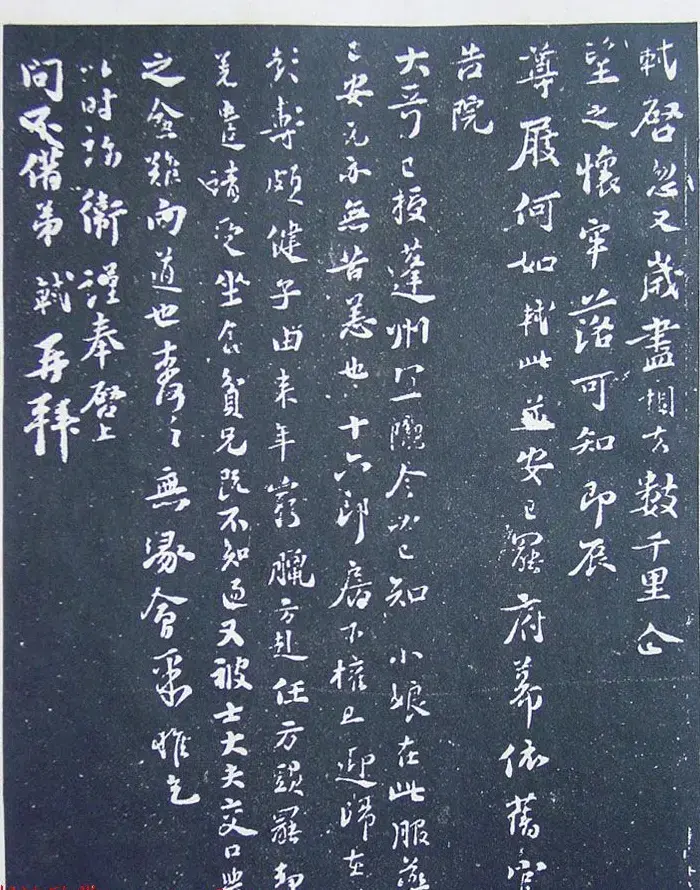 軾啓忽又歲盡相去數千里企
望之懷牢落可知即辰
尊履何如軾此並安已罷府幕依舊官
告院
大哥已授蓬州 今必已知小娘在此服藥
已安兄亦無苦恙也十六郎房下權且迎歸在
彭壽頗健子由來年窮臘方赴任方頭罷
請受坐食貧兄既不知道又被士大夫交口
之 難向道也 無緣會 惟乞
以時 衛謹奉啓上
問不備弟軾再拜